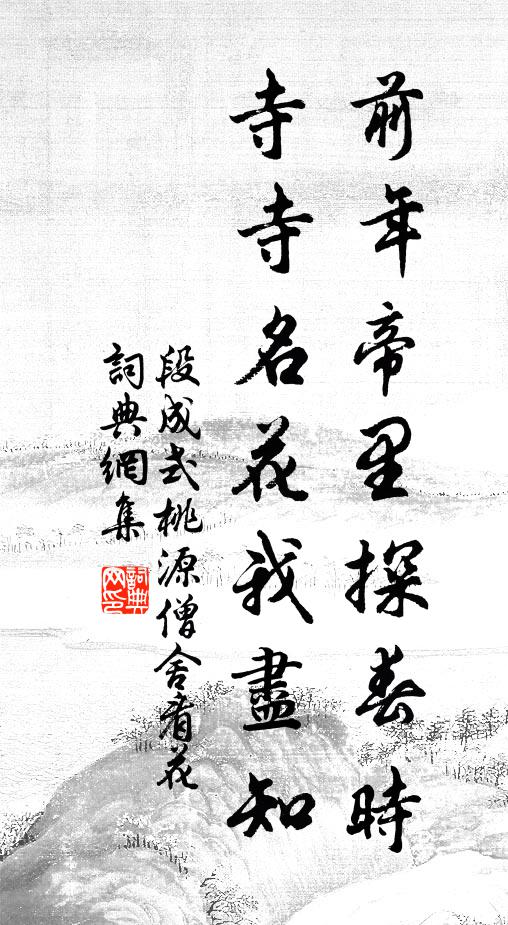 前年帝里探春時
寺寺名花我盡知
段成式桃源僧舍看花
詞典網集
詞典
网印